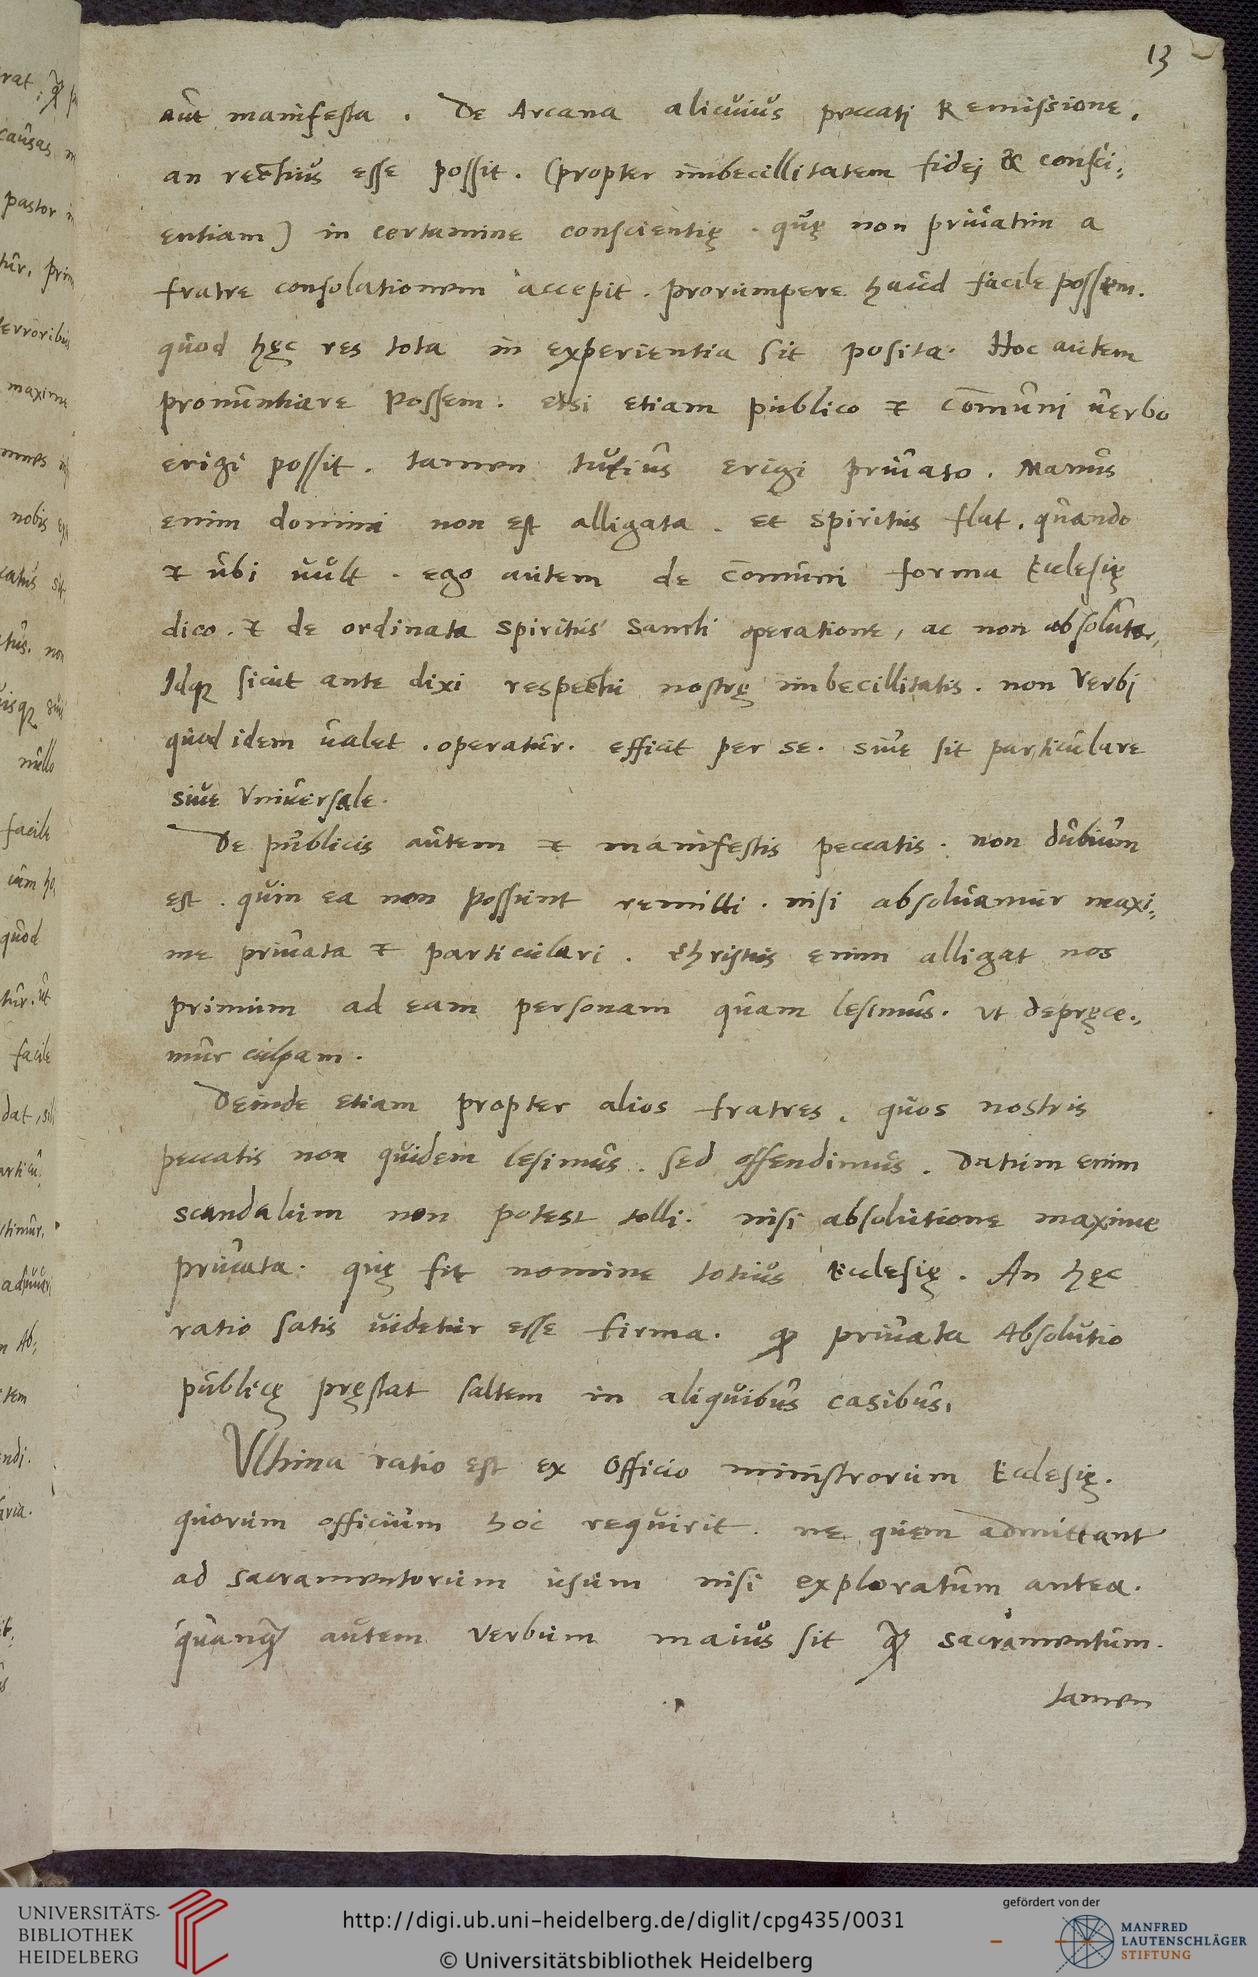 13
aut manifesta . De Arcana alicuius peccati Remissione.
an rectius esse possit . (propter imbecillitatem fidei & consci-
entiam) in certamine conscientię . quę non priuatim a
fratre consolationem accepit . prorumpere haud facile possem.
quod hęc res tota in experientia sit posita . Hoc autem
pronuntiare possem . etsi etiam publico & comuni uerbo
erigi possit . tamen tutius erigi priuato . Manus
enim domini non est alligata . et spiritus flat . quando
& ubi uult . ego autem de comuni forma Ecclesię
dico . & de ordinata spiritus Sancti operatione, ac non absoluta,
Idque sicut ante dixi respectu nostrę imbecillitatis . non Verbi
quod idem ualet . operatur . efficit per se . siue sit particulare
siue Vniuersale .
De publicis autem & manifestis peccatis . non dubium
est . quin ea non possunt remitti . nisi absoluamur maxi-
me priuata & particulari . Christus enim alligat nos
primum ad eam personam quam lesimus . ut depręce-
mur culpam .
Deinde etiam propter alios fratres . quos nostris
peccatis non quidem lesimus . sed offendimus . Datum enim
scandalum non potest tolli . nisi absolutione maxime
priuata . quę fit nomine totius Ecclesię . An hęc
ratio satis uidetur esse firma . qꝫ priuata Absolutio
publicę pręstat saltem in aliquibus casibus .
Vltima ratio est ex Officio ministrorum Ecclesię .
quorum officium hoc requirit . ne quem admittant
ad sacramentorum usum nisi exploratum antea .
quanqꝫ autem Verbum maius sit qꝫ sacramentum .
tamen
UNIVERSITÄTS-
BIBLIOTHEK
HEIDELBERG
http://digi.ub.uni-heidelberg.de/diglit/cpg435/0031
© Universitätsbibliothek Heidelberg
gefördert von der
MANFRED
LAUTENSCHLÄGER
STIFTUNG